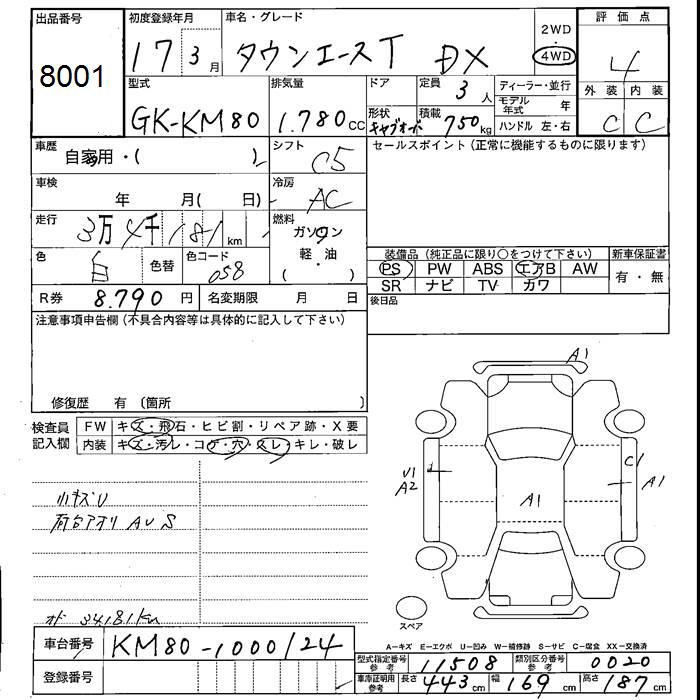 出品番号 初度登録年月 車名・グレード 2WD ・ 4WD 評価点
8001 17 3月 タウンエースT DX 4
型式 排気量 ドア 定員 3人 ディーラー・並行 外装 内装
GK-KM80 1.780cc 形状 キャブオーバー 積載 750kg モデル年式 年 C C
ハンドル 左・右
車歴 自家用・( ) シフト C5 セールスポイント(正常に機能するものに限ります)
車検 年 月( 日) 冷房 AC
走行 3万4千181km 燃料 ガソリン・軽油
色 白 色替 色コード 058
装備品(純正品に限り○をつけて下さい) 新車保証書
PS PW ABS エアB AW 有・無
SR ナビ TV カワ
R券 8.790円 名変期限 月 日 後日品
注意事項申告欄(不具合内容等は具体的に記入して下さい)
修復歴 有(箇所 )
検査員記入欄 FW キズ・飛石・ヒビ割・リペア跡・X要
内装 キズ・汚レ・コゲ・穴・スレ・キレ・破レ
A1
U1 A2
A1
C1
A1
小キズU
荷台アオリ AUS
オド 34181km
スペア
A-キズ E-エクボ U-凹み W-補修跡 S-サビ C-腐食 XX-交換済
車台番号 KM80-1000124
登録番号
型式指定番号参考 11508 類別区分番号参考 0020
車庫証明用参考 長さ 443cm 幅 169cm 高さ 187cm